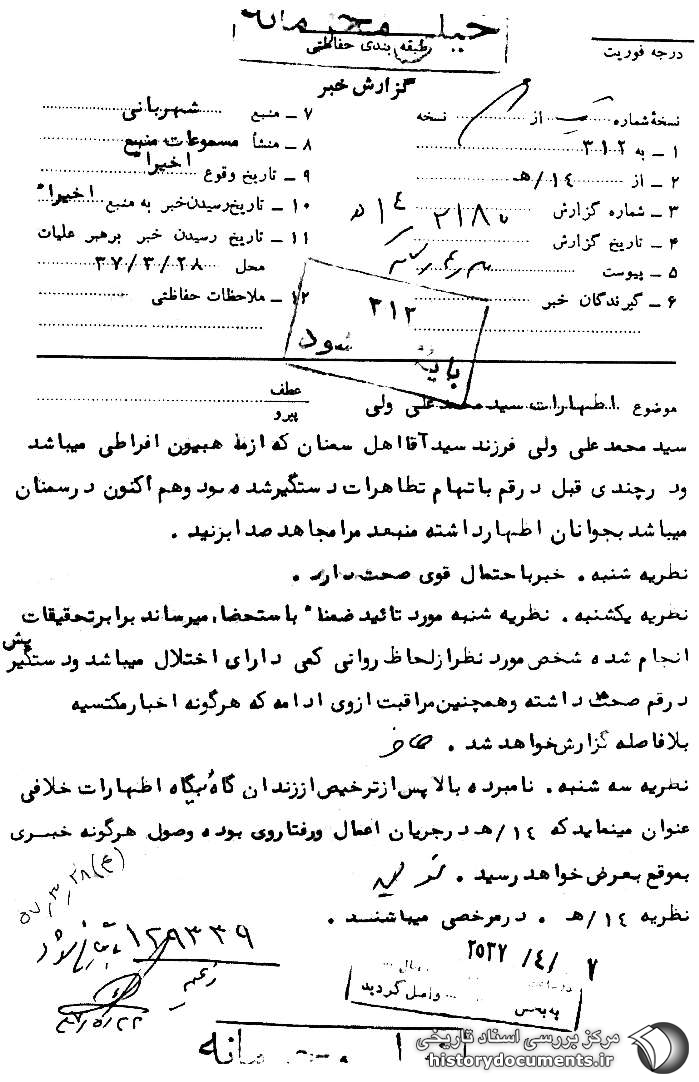 خیلی محرمانه
طبقه بندی حفاظتی
درجه فوریت
گزارش خبر
نسخهٔ شماره از نسخه
۱ ـ به ۳۱۲
۲ ـ از ۱۴/هـ
۳ ـ شماره گزارش
۴ ـ تاریخ گزارش
۵ ـ پیوست
۶ ـ گیرندگان خبر
۷ ـ منبع شهربانی
۸ ـ منشأ مسموعات منبع
۹ ـ تاریخ وقوع اخیراً
۱۰ ـ تاریخ رسیدن خبر به منبع اخیراً
۱۱ ـ تاریخ رسیدن خبر برهبر عملیات
محل ۳۷/۳/۲۸
۱۲ ـ ملاحظات حفاظتی
۳۱۲
بایگانی شود
موضوع اظهارات سید محمد علی ولی
عطف
پیرو
سید محمد علی ولی فرزند سید آقا اهل سمنان که از مذهبیون افراطی میباشد
ودرچندی قبل درقم باتهام تظاهرات دستگیرشده بود وهم اکنون درسمنان
میباشد بجوانان اظهارداشته منبعد مرا مجاهد صدا بزنید .
نظریه شنبه . خبر با حتمال قوی صحت دارد .
نظریه یکشنبه . نظریه شنبه مورد تائید ضمناً باستحضار میرساند برابر تحقیقات
انجام شده شخص مورد نظر از لحاظ روانی کمی دارای اختلال میباشد ودستگیریش
درقم صحت داشته وهمچنین مراقبت ازوی ادامه که هرگونه اخبار مکتسبه
بلافاصله گزارش خواهد شد .
نظریه سه شنبه . نامبرده بالا پس از ترخیص اززندان گاه بیگاه اظهارات خلافی
عنوان مینماید که ۱۴/هـ درجریان اعمال ورفتاروی بوده وصول هرگونه خبری
بموقع بعرض خواهد رسید .
نظریه ۱۴/هـ . درمرخصی میباشند .
۱۲۹۳۳۹
۲۵۳۷/۴/۷
واصل گردید
به بخش
مرکز بررسی اسناد تاریخی
historydocuments.ir